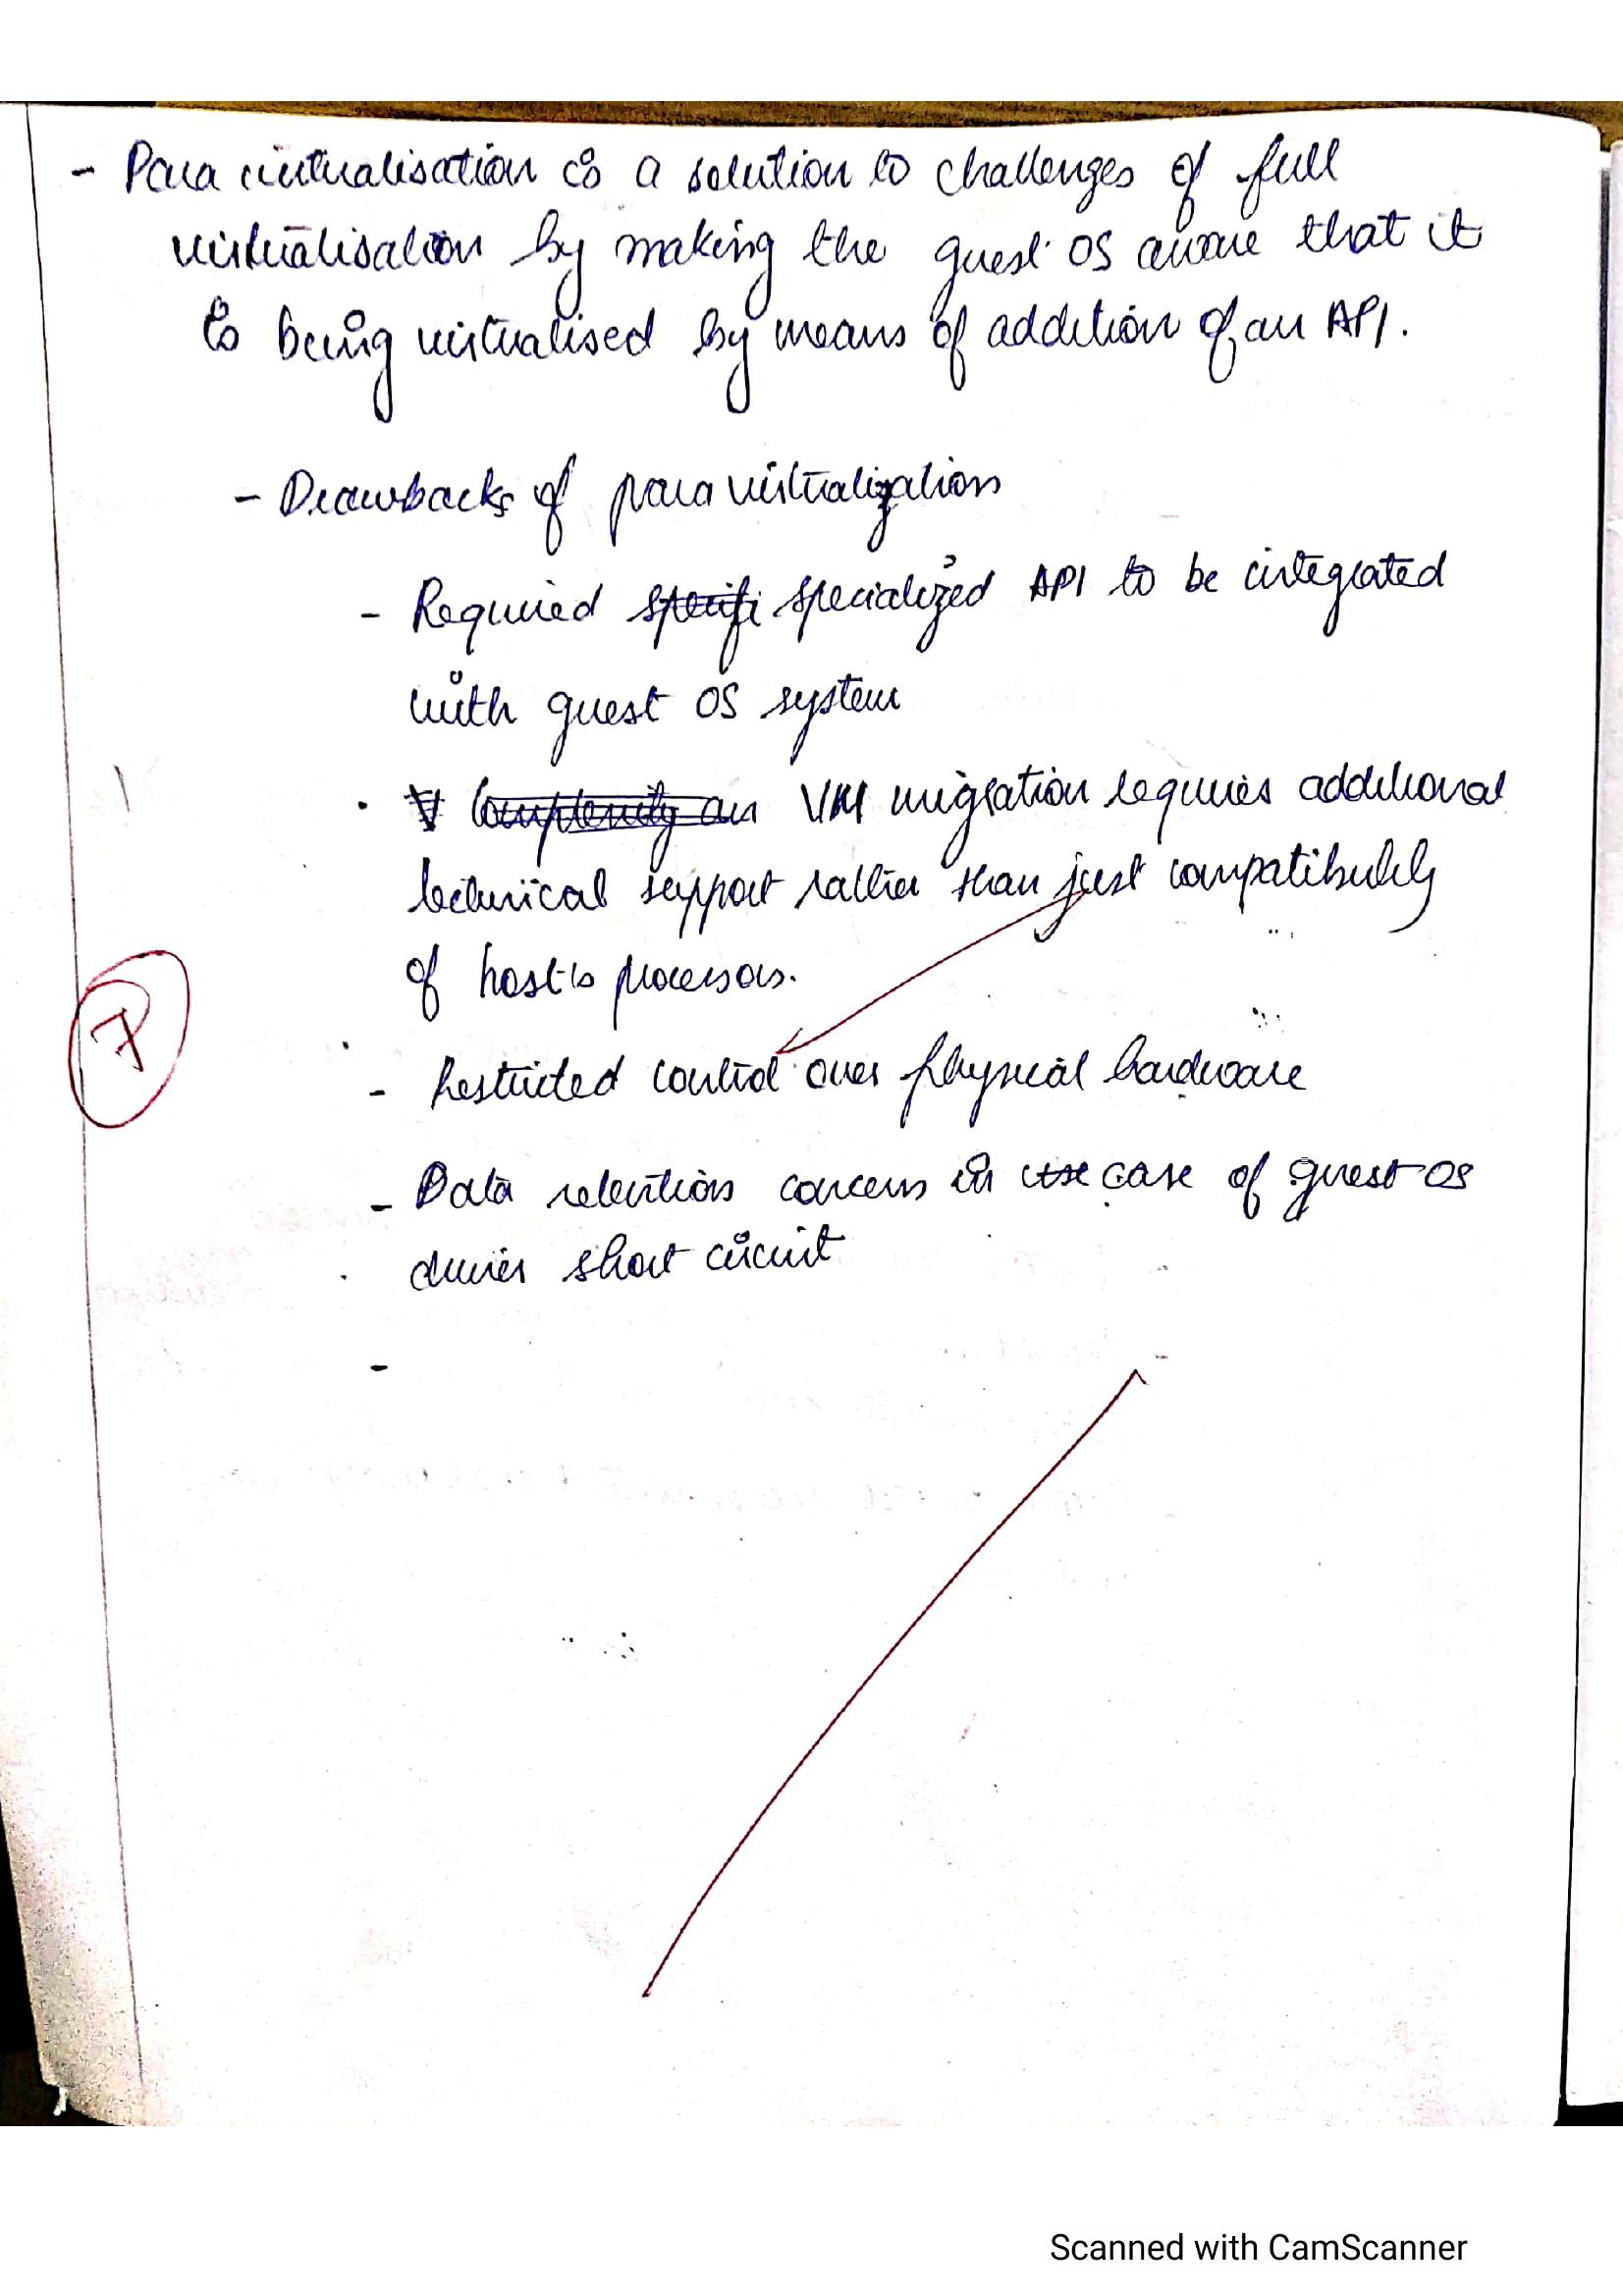 - Para virtualisation is a solution to challenges of full
virtualisation by making the guest OS aware that it
is being virtualised by means of addition of an API.
- Drawbacks of para virtualization
- Required specifi specialized API to be integrated
with guest OS system
· V Complexity an VM migration requires additional
technical support rather than just compatibility
of host's processors.
7
- Restricted control over physical hardware
- Data retention concerns in use case of guest OS
driver short circuit
-
Scanned with CamScanner